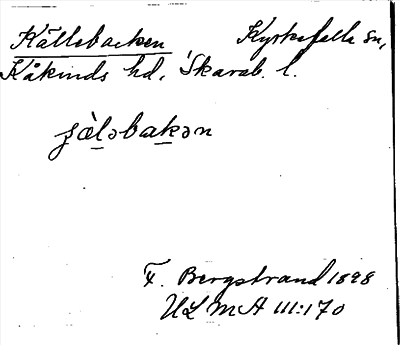 Källebacken Kyrkefalla sn,
Kåkinds hd, Skarab. l.
ʃàl̠əbak̠ən
F. Bergstrand 1898
ULMA 111:170